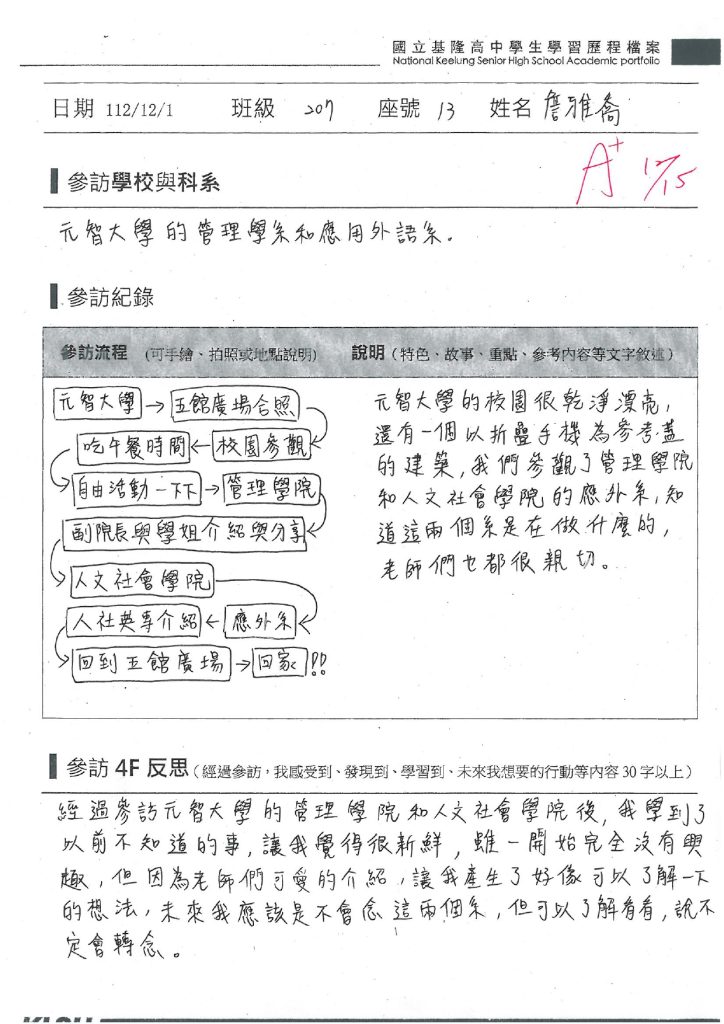 國立基隆高中學生學習歷程檔案
National Keelung Senior High School Academic portfolio
日期 112/12/1 班級 207 座號 13 姓名 詹雅喬
A+ 12/15
參訪學校與科系
元智大學的管理學系和應用外語系。
參訪紀錄
參訪流程 (可手繪、拍照或地點說明)
元智大學→五館廣場合照
吃午餐時間←校園參觀
自由活動一下下→管理學院
副院長與學姐介紹與分享
人文社會學院
人社英專介紹←應外系
回到五館廣場→回家!!
說明 (特色、故事、重點、參考內容等文字敘述)
元智大學的校園很乾淨漂亮,
還有一個以折疊手機為參考蓋
的建築,我們參觀了管理學院
和人文社會學院的應外系,知
道這兩個系是在做什麼的,
老師們也都很親切。
參訪 4F 反思 (經過參訪,我感受到、發現到、學習到、未來我想要的行動等內容 30 字以上)
經過參訪元智大學的管理學院和人文社會學院後,我學到了
以前不知道的事,讓我覺得很新鮮,雖一開始完全沒有興
趣,但因為老師們可愛的介紹,讓我產生了好像可以了解一下
的想法,未來我應該是不會念這兩個系,但可以了解看看,說不
定會轉念。